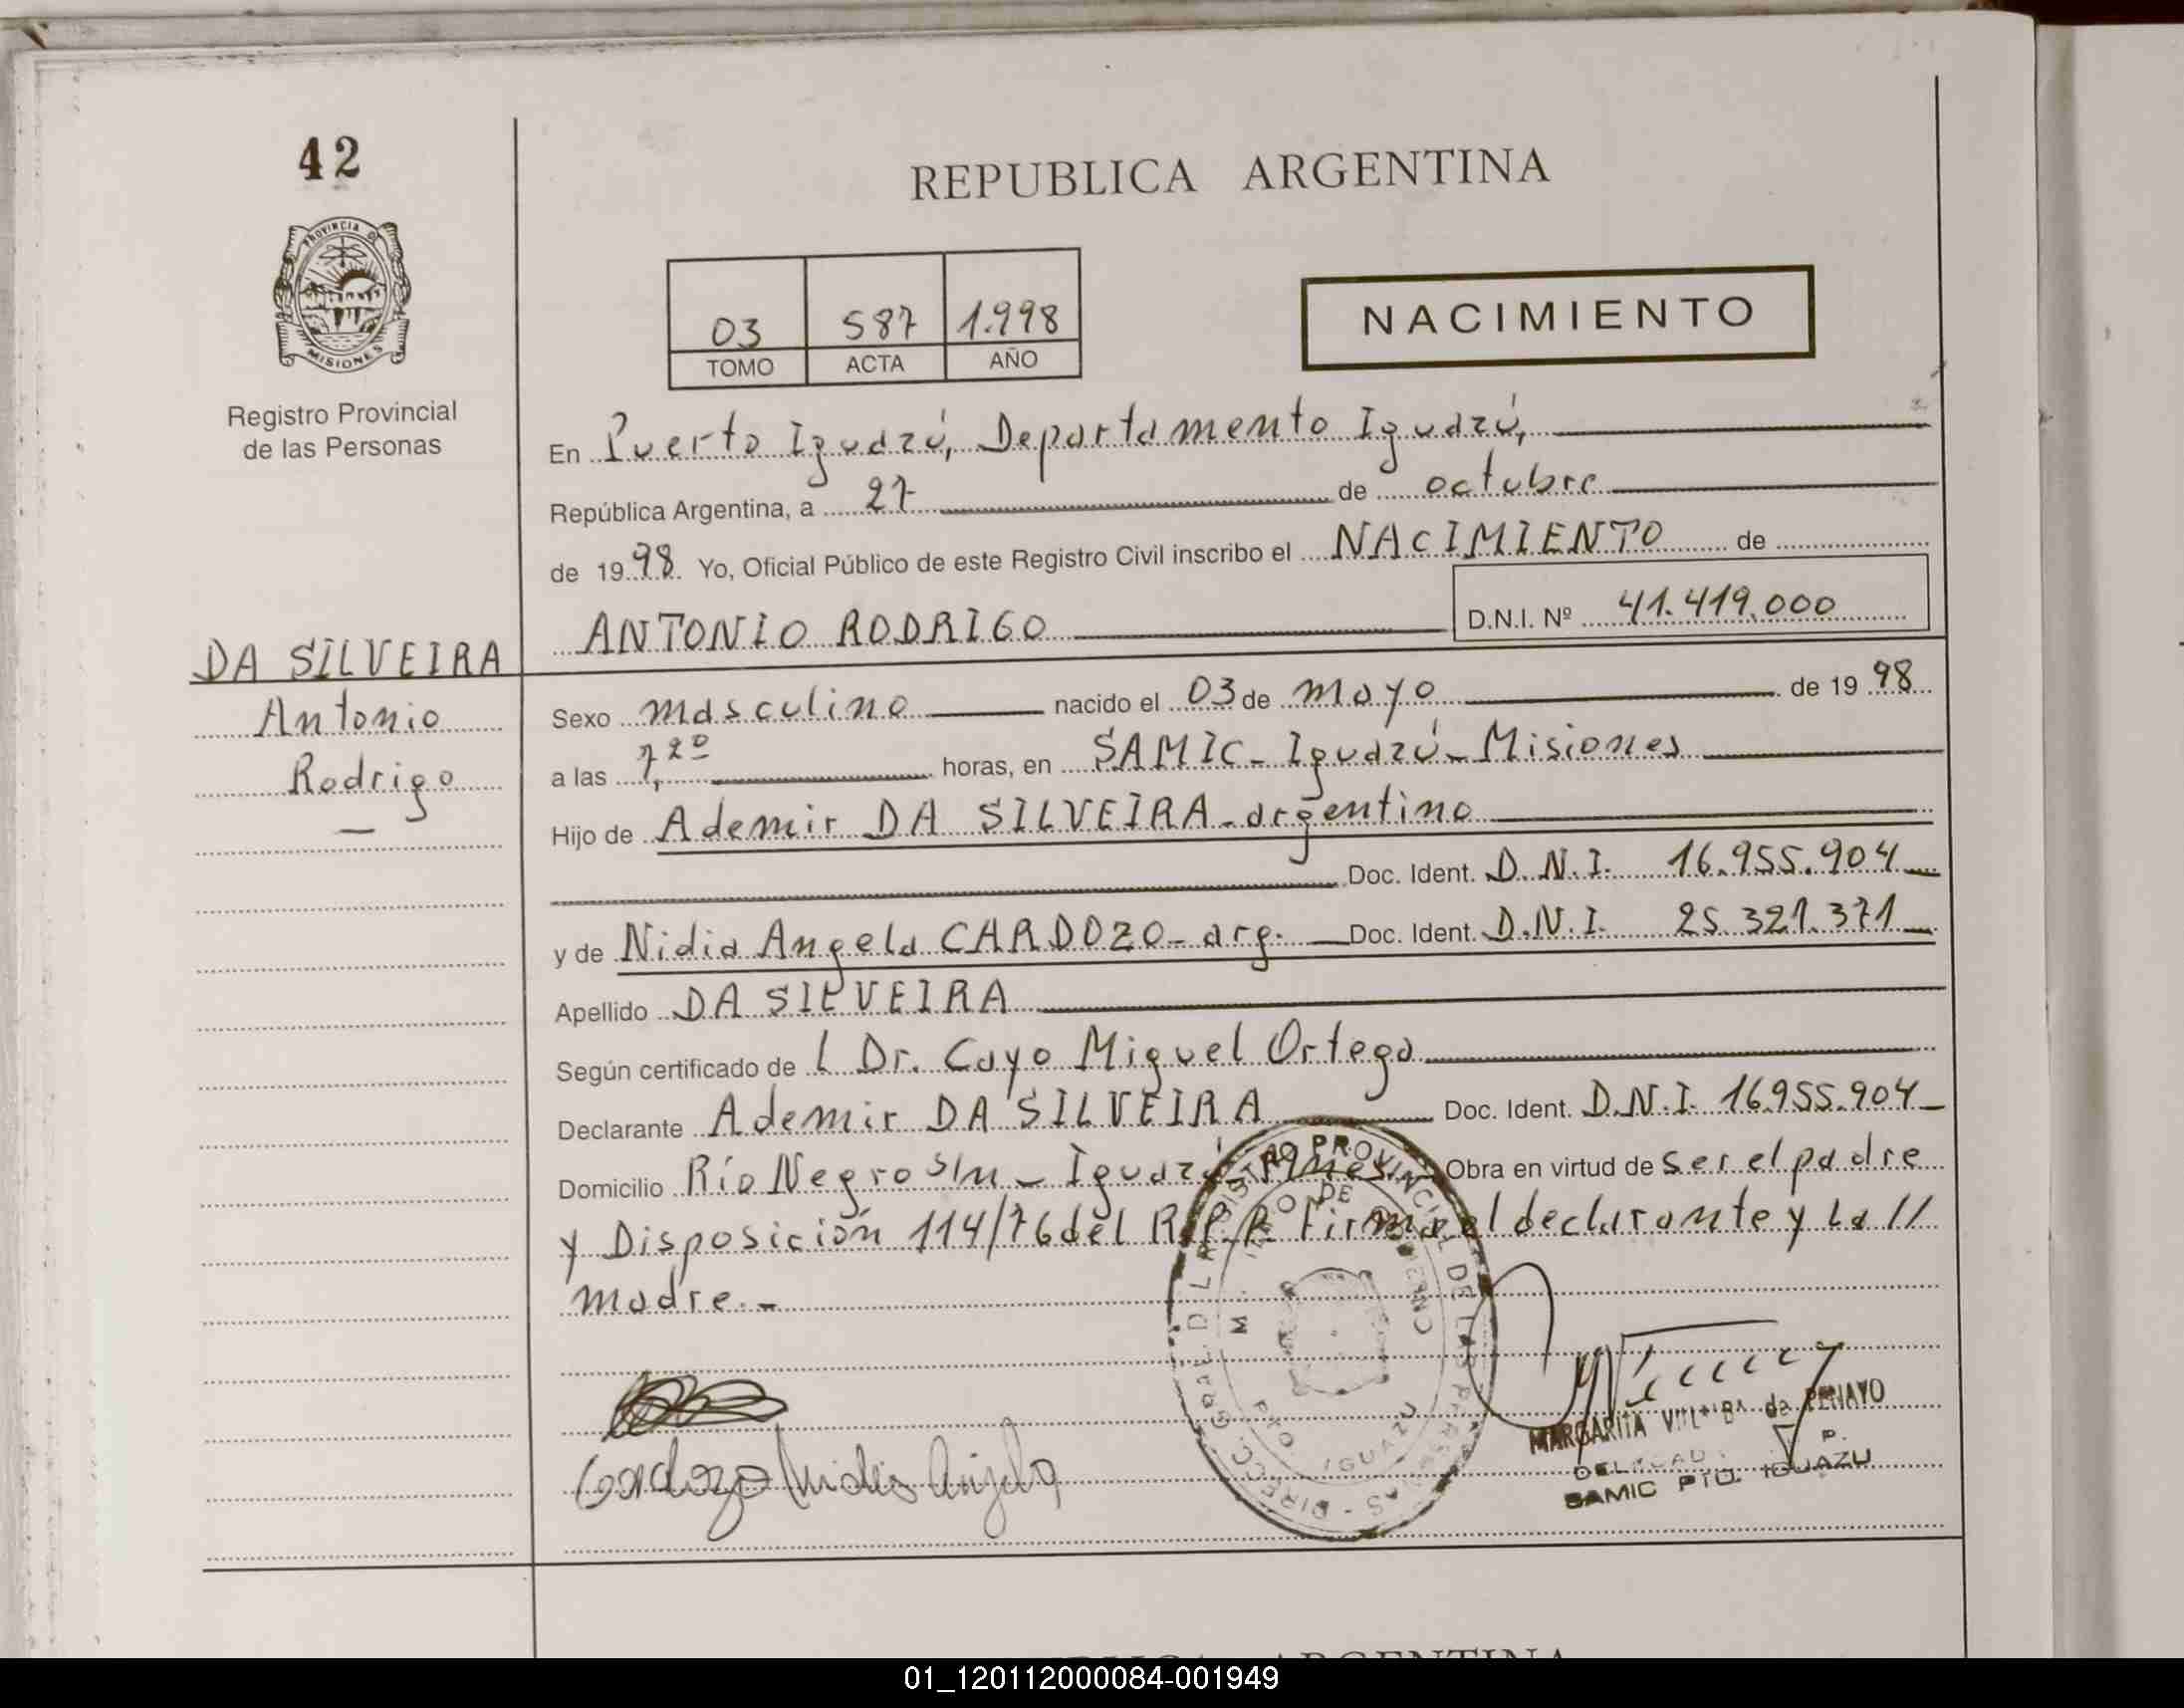 42
REPUBLICA ARGENTINA
PROVINCIA D
MISIONES
Registro Provincial
de las Personas
03 587 1.998
TOMO ACTA AÑO
NACIMIENTO
En Puerto Iguazú, Departamento Iguazú,
República Argentina, a 27 de octubre
de 1998 Yo, Oficial Público de este Registro Civil inscribo el NACIMIENTO de
ANTONIO RODRIGO D.N.I. Nº 41.419.000
DA SILVEIRA
Antonio
Rodrigo
Sexo masculino nacido el 03 de mayo de 1998
a las 7,20 horas, en SAMIC - Iguazú - Misiones
Hijo de Ademir DA SILVEIRA - argentino
Doc. Ident. D.N.I. 16.955.904
y de Nidia Angela CARDOZO - arg. Doc. Ident. D.N.I. 25.321.371
Apellido DA SILVEIRA
Según certificado de l Dr. Cayo Miguel Ortega
Declarante Ademir DA SILVEIRA Doc. Ident. D.N.I. 16.955.904
Domicilio Río Negro s/n - Iguazú - Mnes. Obra en virtud de ser el padre
y Disposición 114/76 del R.P.P. Firman el declarante y La //
madre.-
REGISTRO PROVINCIAL DE LAS PERSONAS - DIRECC. GRAL. D
DE GOBIERNO
PTO IGUAZU
Cardozo Nidia Angela
MARGARITA de PENAYO
SAMIC PTO. IGUAZU
REPUBLICA ARGENTINA
01_120112000084-001949